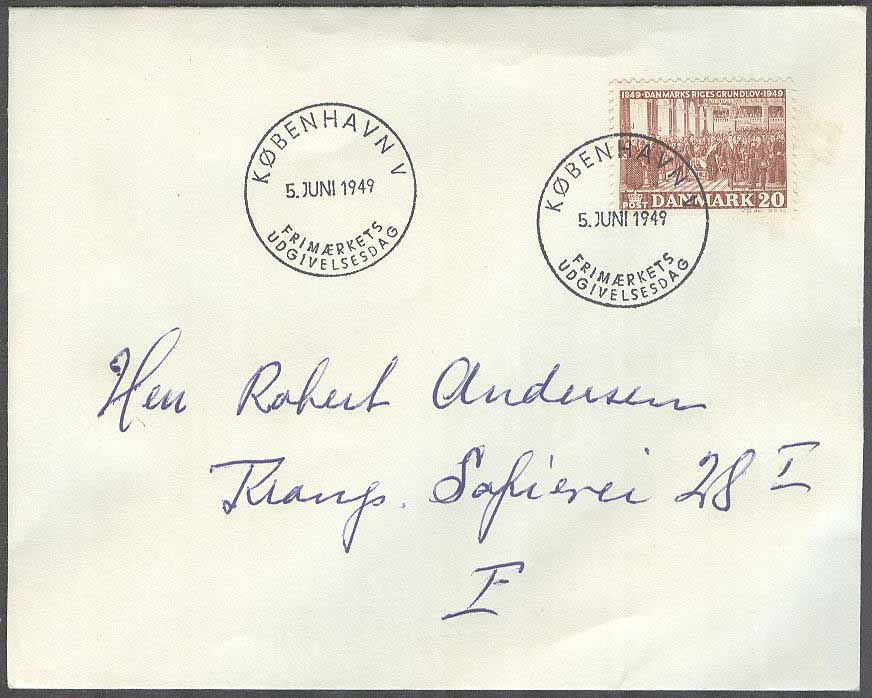 KØBENHAVN V
5. JUNI 1949
FRIMÆRKETS
UDGIVELSESDAG
1849 · DANMARKS RIGES GRUNDLOV · 1949
POST DANMARK 20
KØBENHAVN V
5. JUNI 1949
FRIMÆRKETS
UDGIVELSESDAG
Herr Robert Andersen
Sofievei 28 I
F